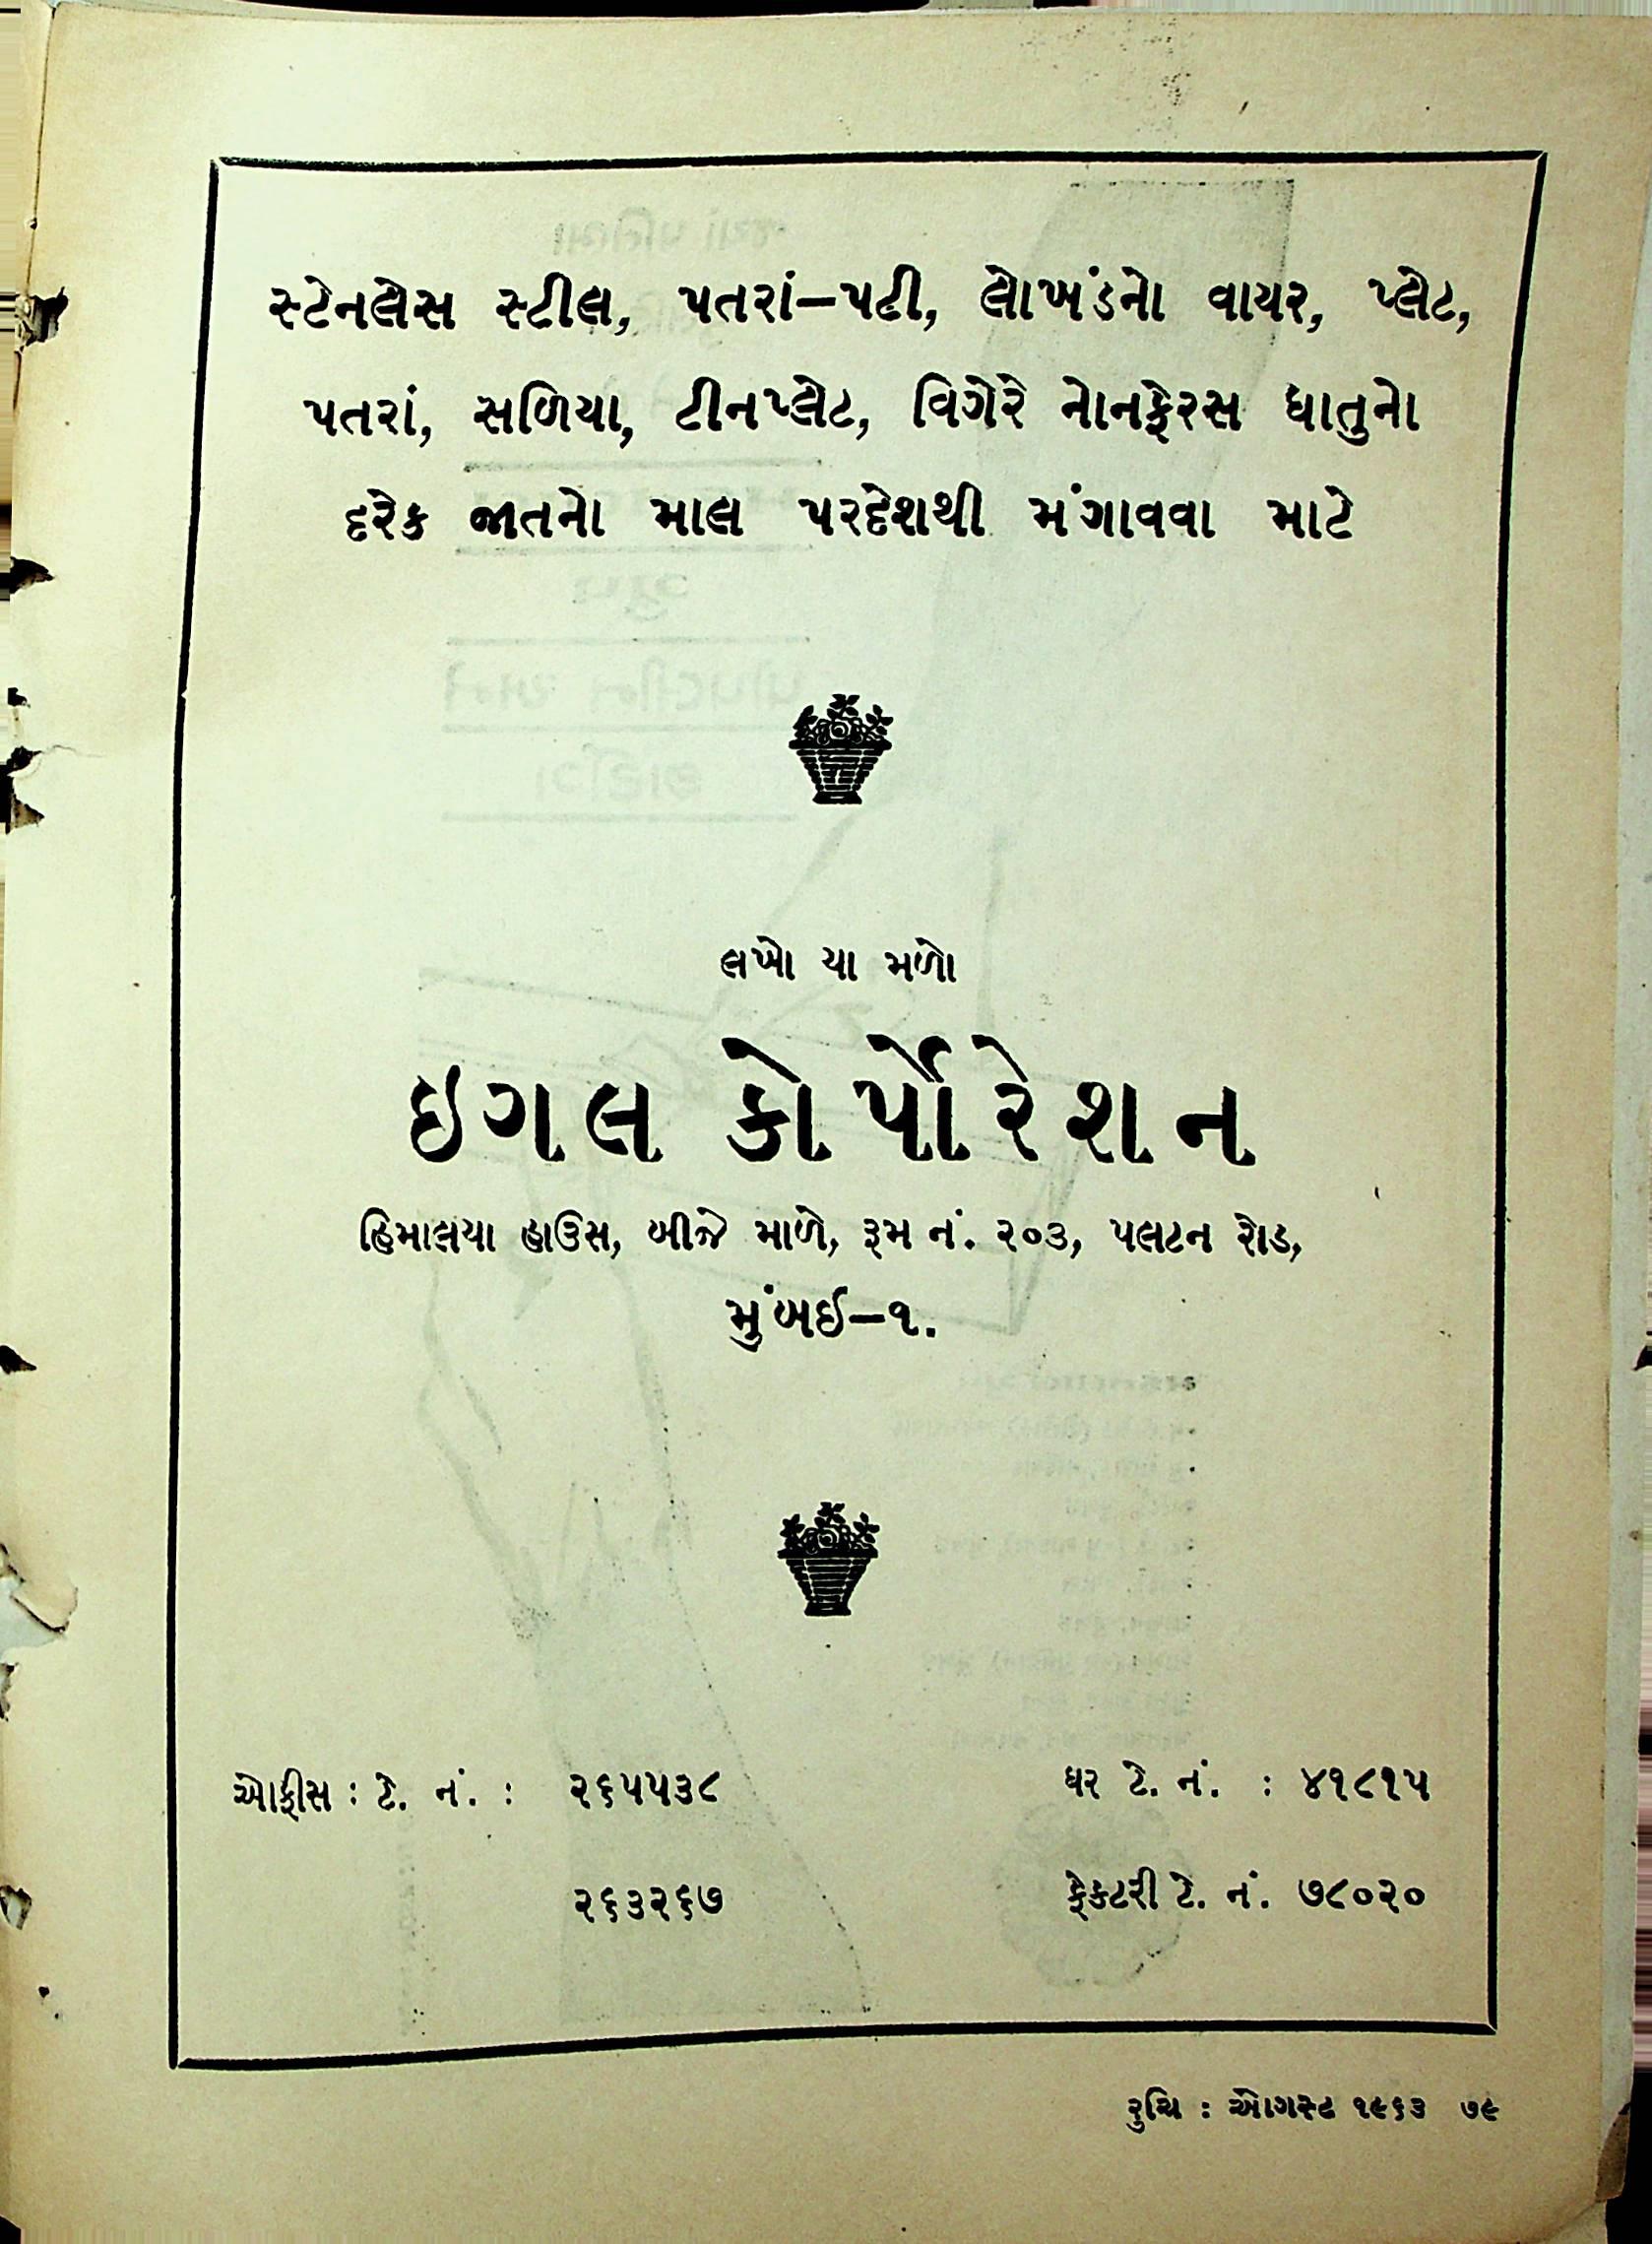 સ્ટેનલેસ સ્ટીલ, પતરાં–પટી, લોખંડનો વાયર, પ્લેટ,
પતરાં, સળિયા, ટીનપ્લેટ, વિગેરે નોનફેરસ ધાતુનો
દરેક જાતનો માલ પરદેશથી મંગાવવા માટે
લખો યા મળો
ઇગલ કોર્પોરેશન
હિમાલયા હાઉસ, બીજે માળે, રૂમ નં. ૨૦૩, પલટન રોડ,
મુંબઈ–૧.
ઓફીસ : ટે. નં. : ૨૬૫૫૩૮ ઘર ટે. નં. : ૪૧૮૧૫
૨૬૩૨૬૭ ફેકટરી ટે. નં. ૭૮૦૨૦
રુચિ : ઓગસ્ટ ૧૯૬૩ ૭૯